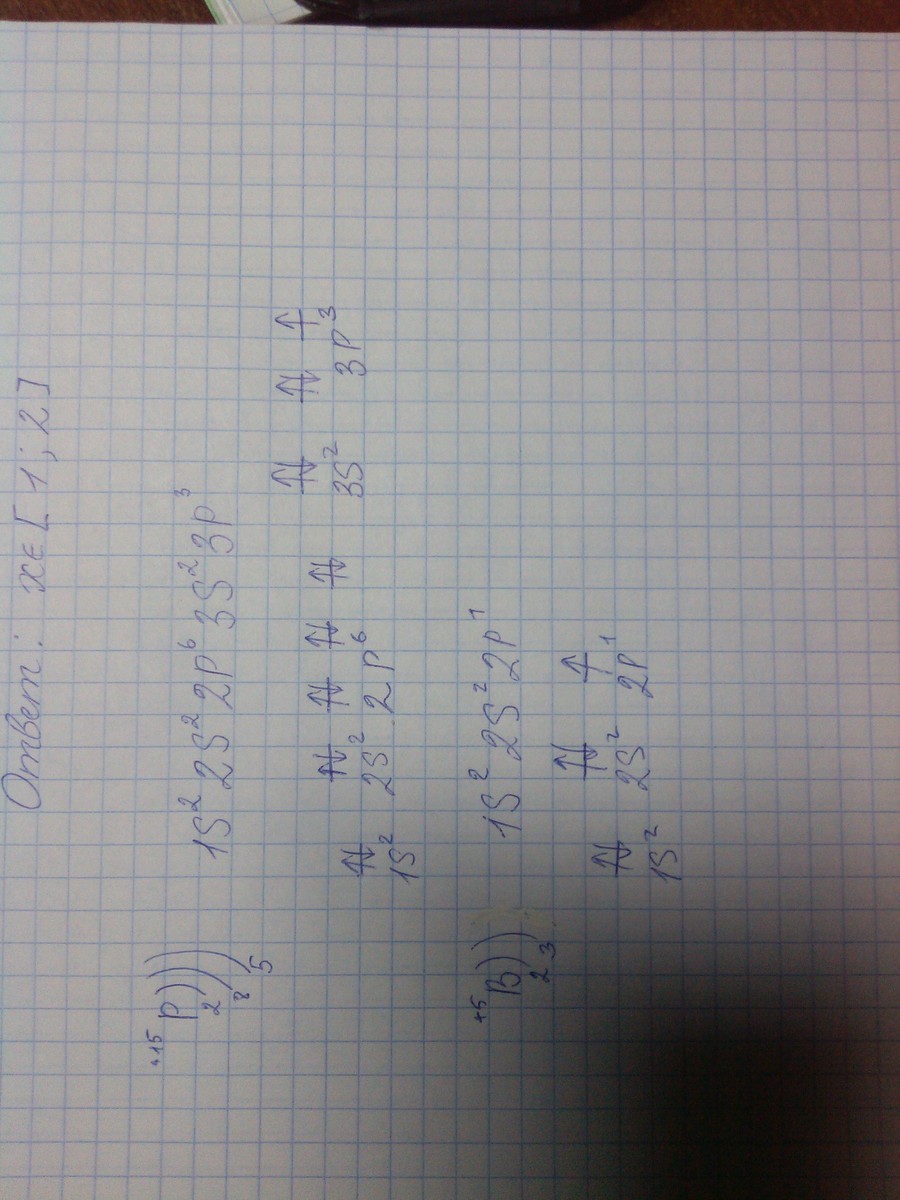 Ответ: x∈[1;2]
+15 P ) ) ) 1S² 2S² 2p⁶ 3S² 3p³
2 8 5
⇅ ⇅ ⇅ ⇅ ⇅ ⇅ ⇅ ↑
1S² 2S² 2p⁶ 3S² 3p³
+5 B ) ) 1S² 2S² 2p¹
2 3
⇅ ⇅ ↑
1S² 2S² 2p¹